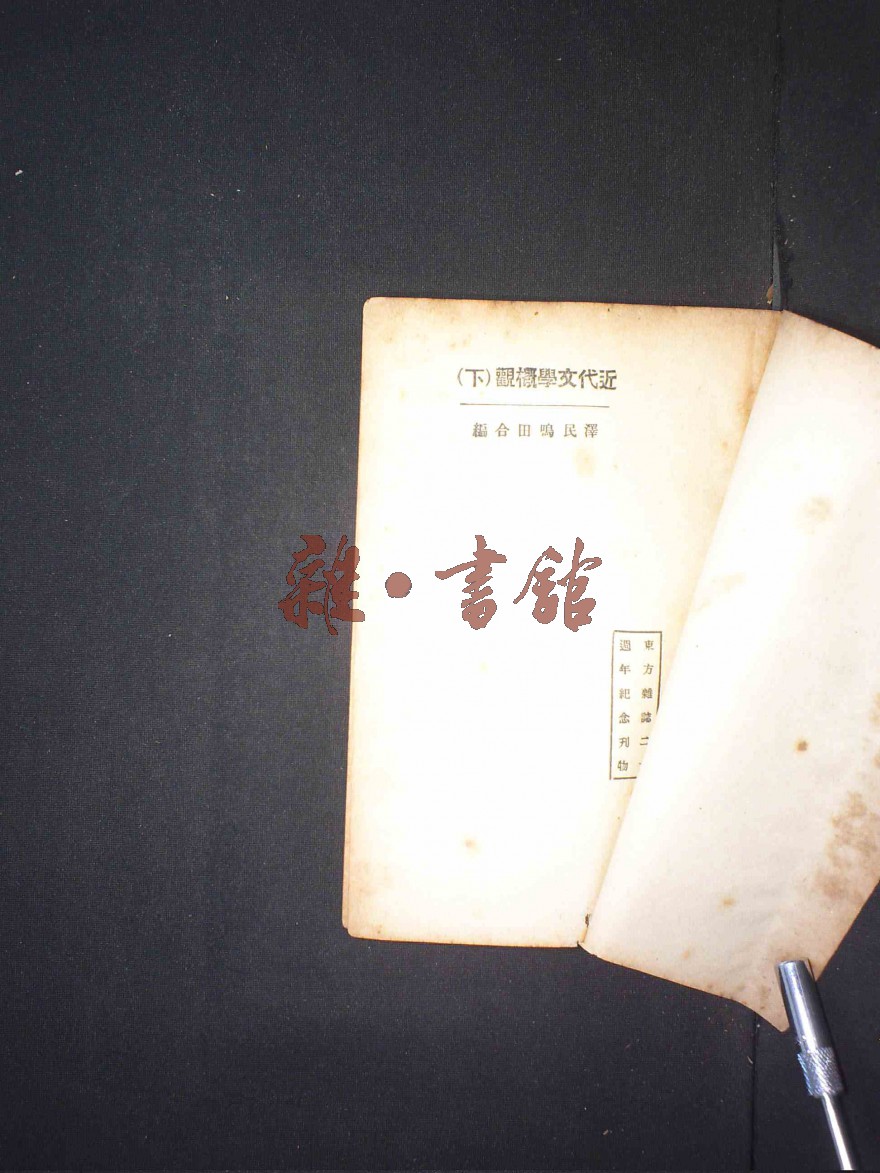 近代文學概觀(下)
澤民鳴田合編
東方雜誌二
週年紀念刊物
雜·書館